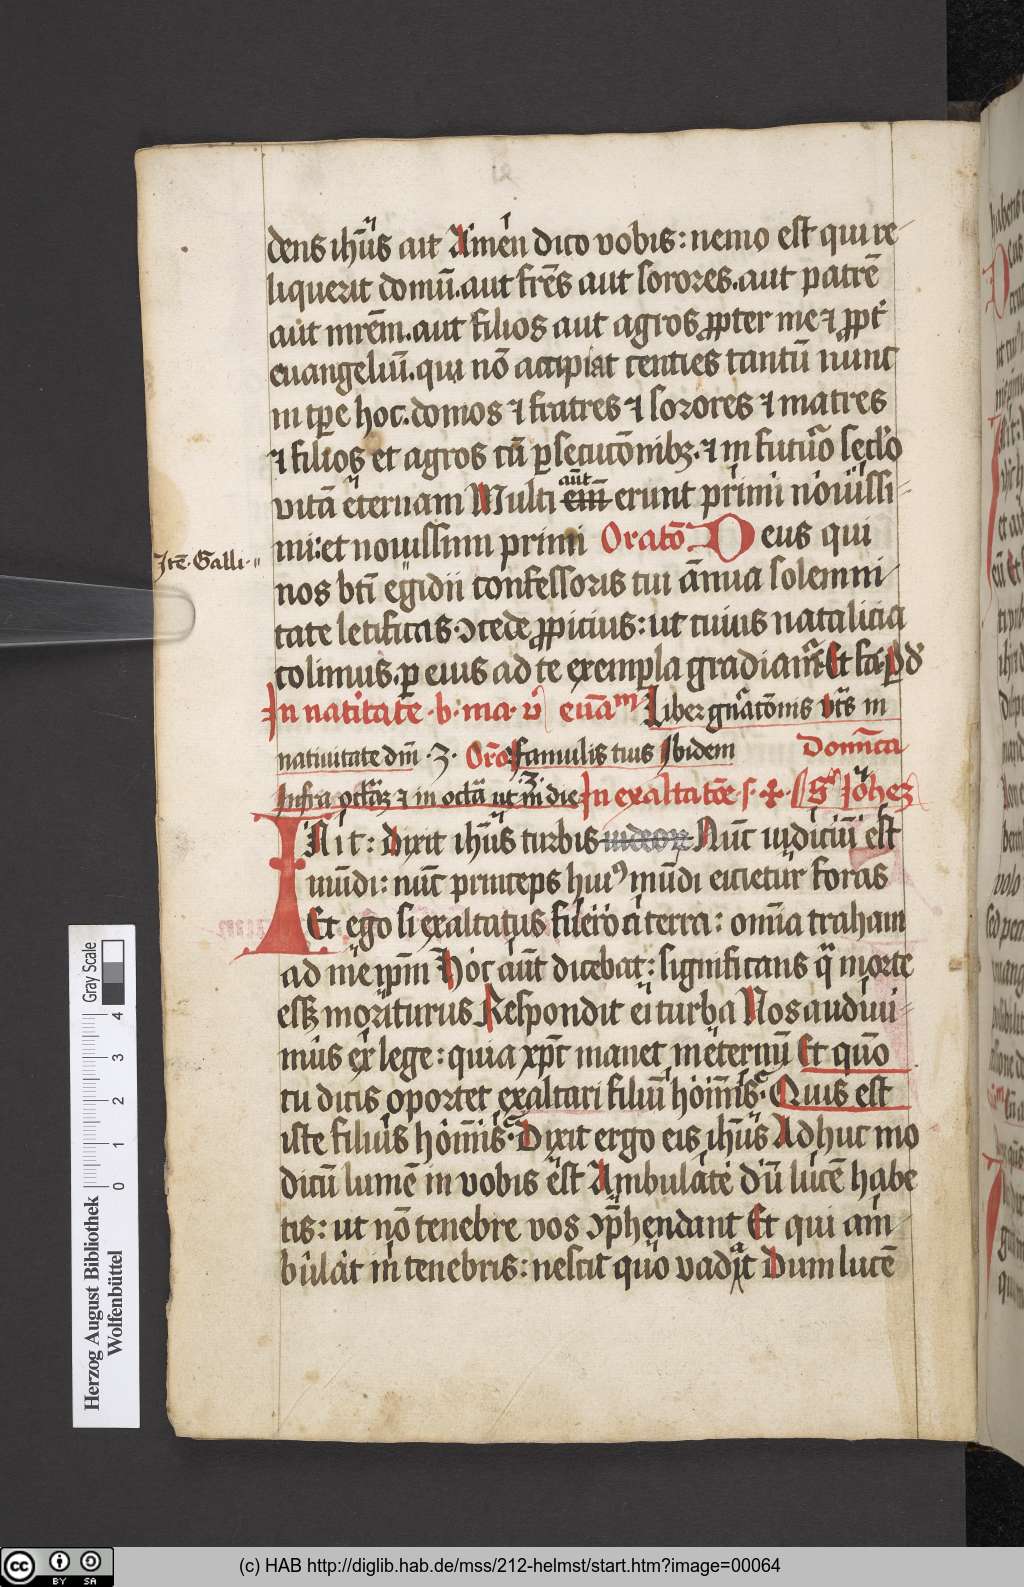 dens ihūs ait Amen dico vobis: nemo est qui re-
liquerit domū. aut fr̄es aut sorores. aut patrē
aut mr̄em. aut filios aut agros ꝓpter me ⁊ ꝓpt̄
euangeliū. qui nō accipiat centies tantū nunc
in tp̄e hoc. domos ⁊ fratres ⁊ sorores ⁊ matres
⁊ filios et agros cū ꝑsecucōnibꝫ. ⁊ in futuro sec̄lo
vitā eternam Multi em̄ aūt erunt primi nouissi-
mi: et nouissimi primi Oratō Deus qui
Itē. Galli.
nos bt̄i egidii confessoris tui ānua solemni-
tate letificas. ↄcede ꝓpicius: ut cuius natalicia
colimus. ꝑ eius ad te exempla gradiam̄.
In natitate. b. ma. v̄ euām Liber gn̄acōnis in
natiuitate dm̄. Z. Orō Famulis tuis Ibidem Domīca
Infra octāꝫ ⁊ in octā ut in die In exaltatōe. s. ✠. S Johēꝫ
In īt: Dixit ihūs turbis Nūc iudiciū est
mūdi: nūc princeps huiꝰ mūdi eicietur foras
Et ego si exaltatus fuero a terra: omīa traham
ad me ip̄m Hoc aūt dicebat: significans q̄ morte
esset moriturus Respondit ei turba Nos audiui-
mus ex lege: quia xp̄c manet in eternū Et quō
tu dicis oportet exaltari filiū hoīs. Quis est
iste filius hoīs. Dixit ergo eis ihūs Adhuc mo
dicū lumē in vobis est Ambulate dū lucē habe
tis: ut nō tenebre vos ↄp̄hendant Et qui am-
bulat in tenebris: nescit quo vadat Dum lucē
Herzog August Bibliothek
Wolfenbüttel
Gray Scale
0 1 2 3 4
(c) HAB http://diglib.hab.de/mss/212-helmst/start.htm?image=00064
cc BY SA